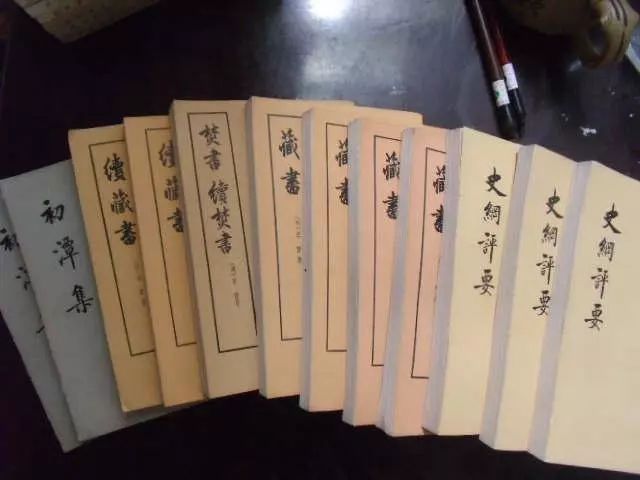 初
初潭集
續藏書
續藏書
焚書 續焚書
藏書
藏書
藏書
藏書
史綱評要
史綱評要
史綱評要